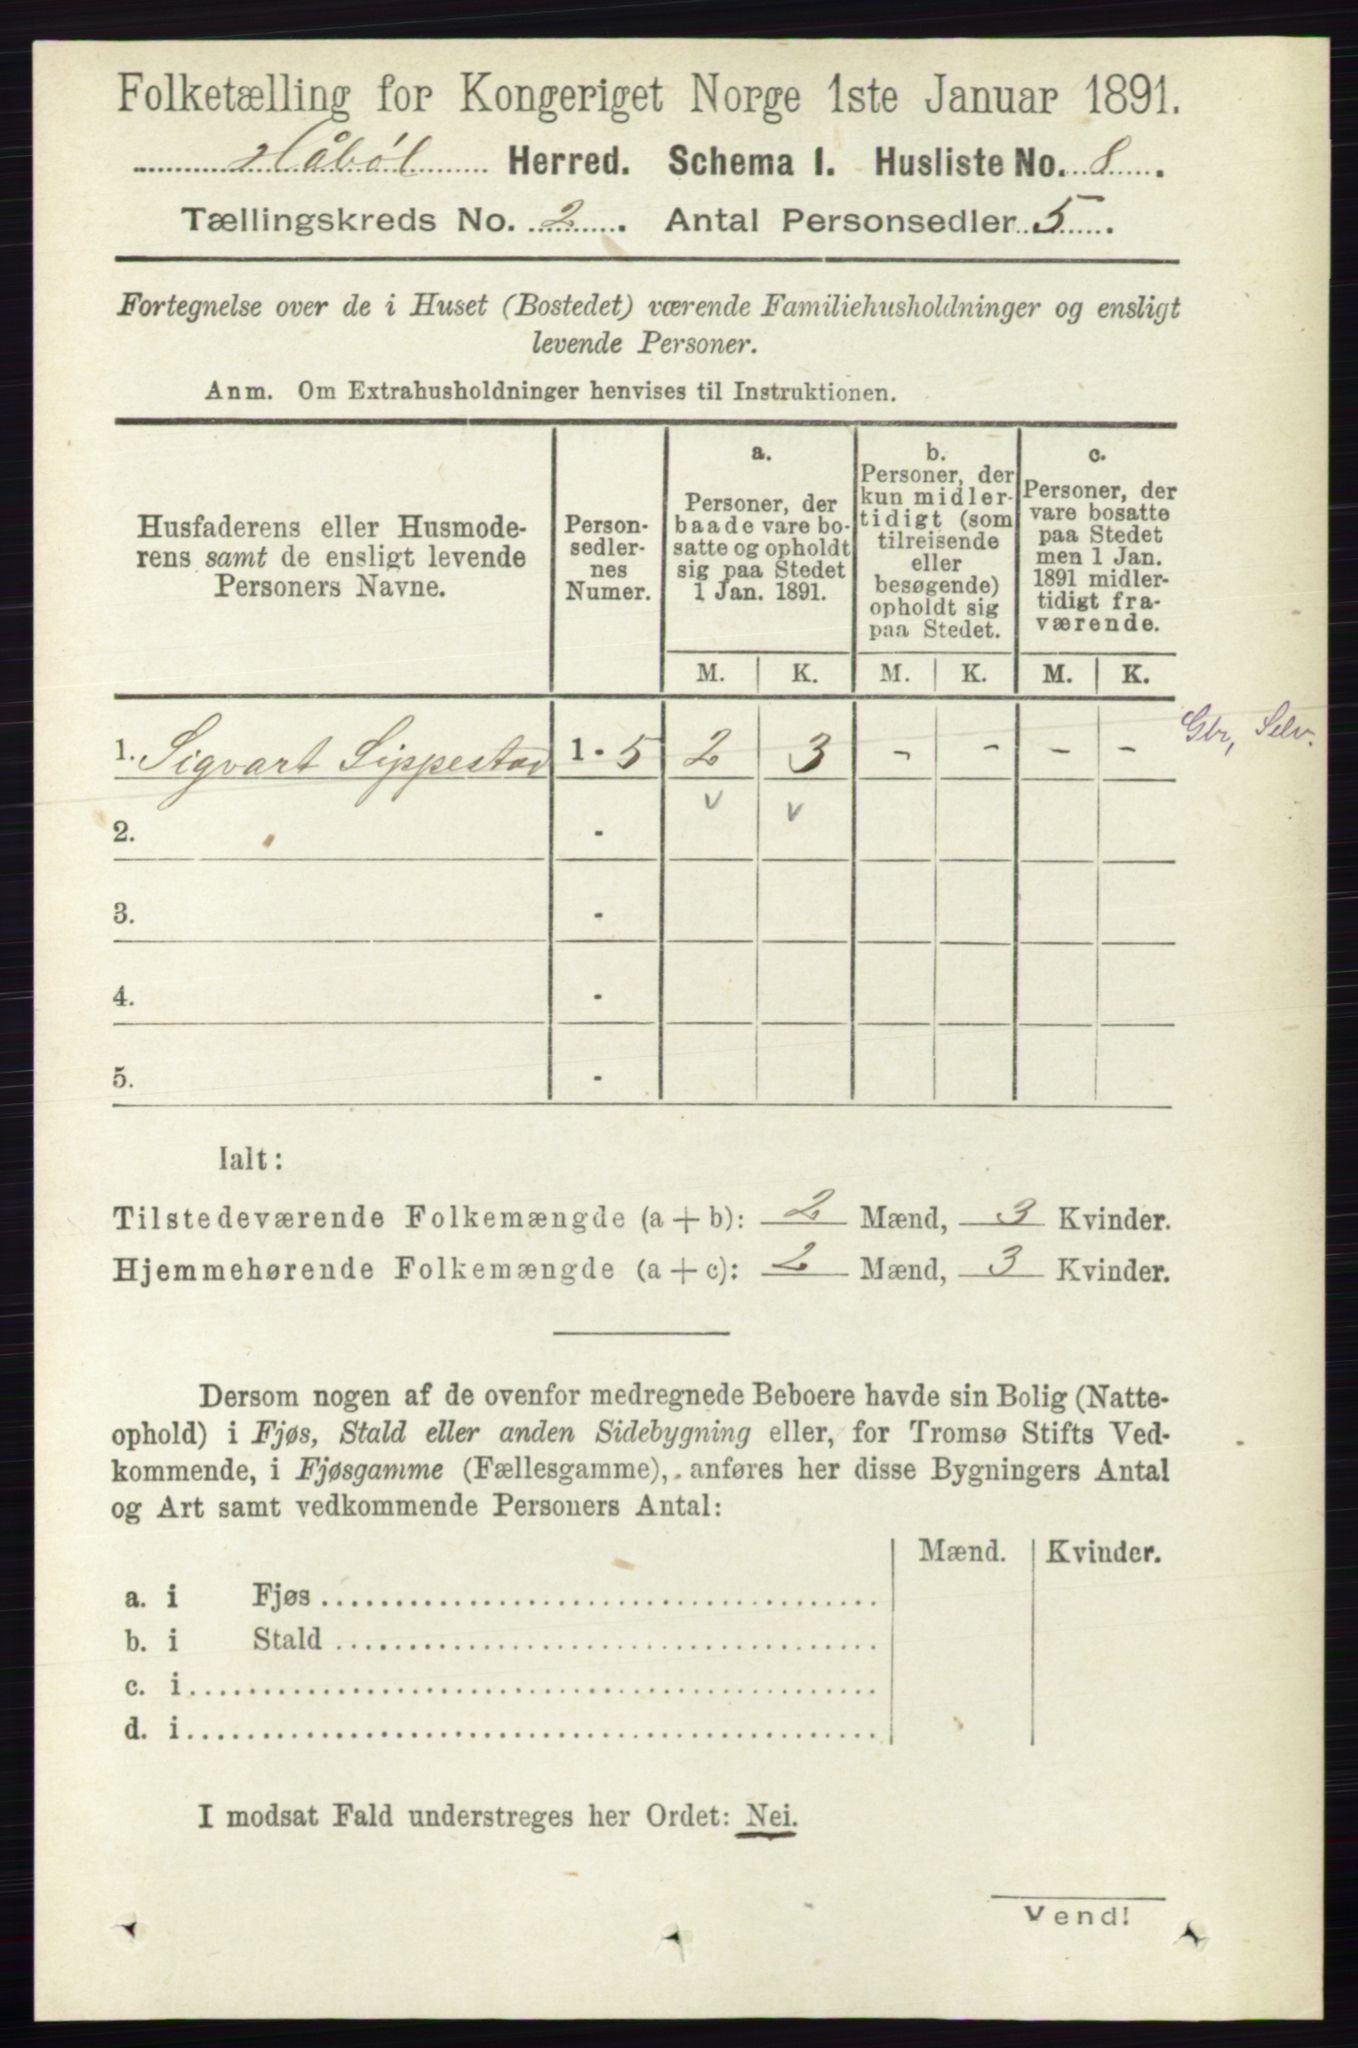 Folketælling for Kongeriget Norge 1ste Januar 1891.
Håbøl Herred. Schema I. Husliste No. 8.
Tællingskreds No. 2. Antal Personsedler 5.
Fortegnelse over de i Huset (Bostedet) værende Familiehusholdninger og ensligt
levende Personer.
Anm. Om Extrahusholdninger henvises til Instruktionen.
Husfaderens eller Husmode-
rens samt de ensligt levende
Personers Navne.
Person-
sedler-
nes
Numer.
a.
Personer, der
baade vare bo-
satte og opholdt
sig paa Stedet
1 Jan. 1891.
b.
Personer, der
kun midler-
tidigt (som
tilreisende
eller
besøgende)
opholdt sig
paa Stedet.
c.
Personer, der
vare bosatte
paa Stedet
men 1 Jan.
1891 midler-
tidigt fra-
værende.
M. K. M. K. M. K.
1. Sigvart Sippestad 1 - 5 2 3 - - - - Gbr, Selv.
v v
2. -
3. -
4. -
5. -
Ialt:
Tilstedeværende Folkemængde (a + b): 2 Mænd, 3 Kvinder.
Hjemmehørende Folkemængde (a + c): 2 Mænd, 3 Kvinder.
Dersom nogen af de ovenfor medregnede Beboere havde sin Bolig (Natte-
ophold) i Fjøs, Stald eller anden Sidebygning eller, for Tromsø Stifts Ved-
kommende, i Fjøsgamme (Fællesgamme), anføres her disse Bygningers Antal
og Art samt vedkommende Personers Antal:
Mænd. Kvinder.
a. i Fjøs
b. i Stald
c. i
d. i
I modsat Fald understreges her Ordet: Nei.
Vend!